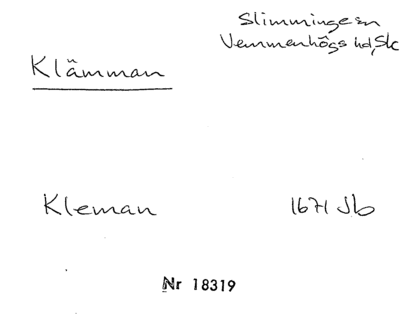 Slimminge sn
Vemmenhögs hd, Sk
Klämman
Kleman 1671 Jb
Nr 18319